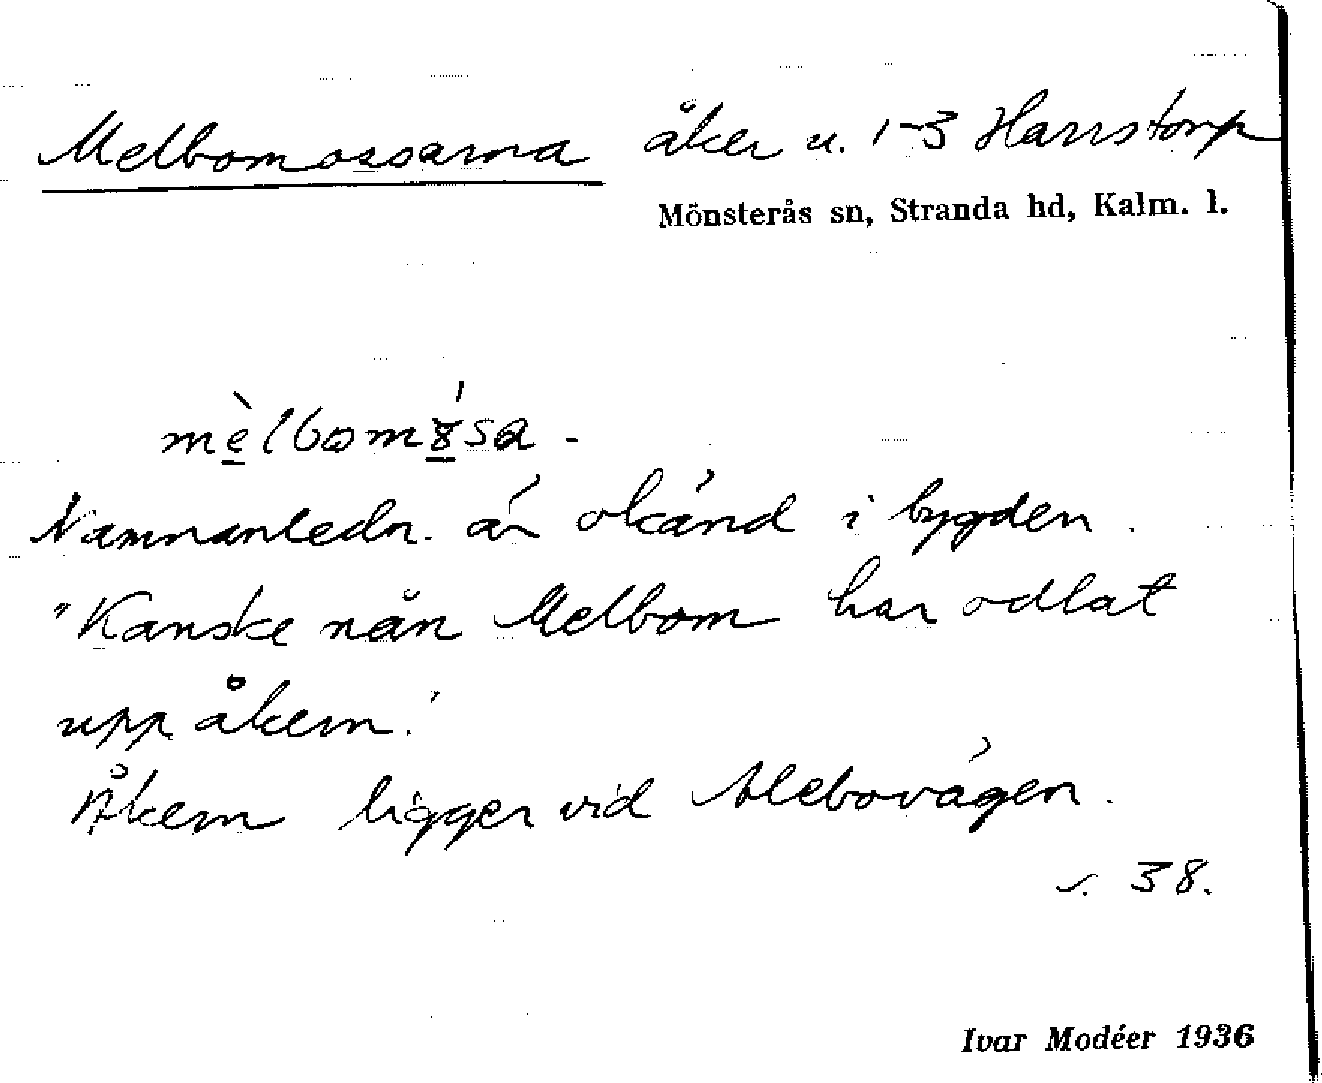 Melbomossarna åker u. 1-3 Harrstorp
Mönsterås sn, Stranda hd, Kalm. l.
mèlbomó̱sa -
Namnanledn. är okänd i bygden.
"Kanske nån Melbom har odlat
upp åkern."
Åkern ligger vid Alebovägen.
s. 38.
Ivar Modéer 1936